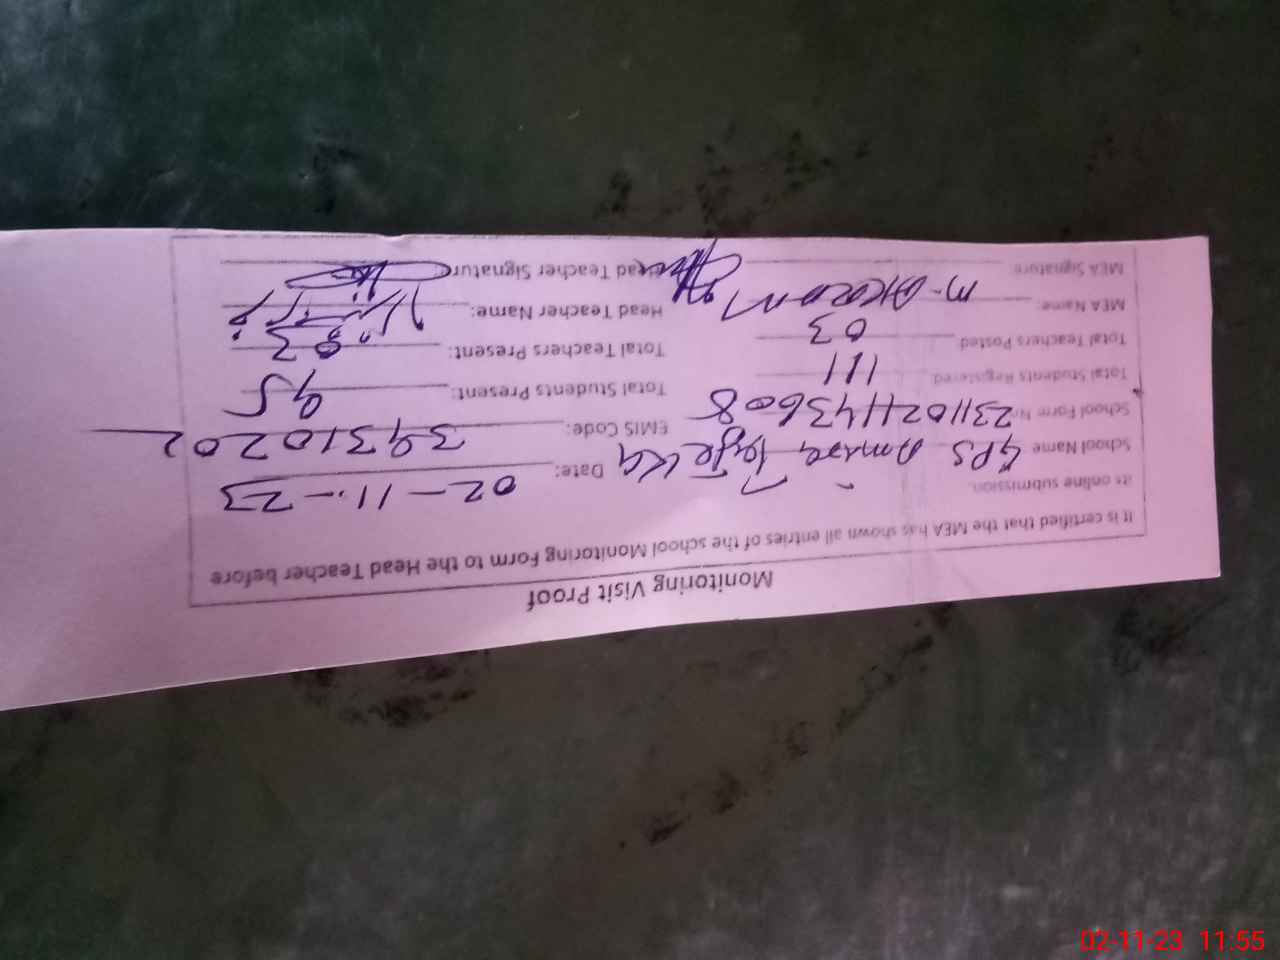 Monitoring Visit Proof
It is certified that the MEA has shown all entries of the school Monitoring Form to the Head Teacher before
its online submission.
School Name GPS Date: 02-11-23
School Form No 23110211436008 EMIS Code: 39310202
Total Students Registered: 111 Total Students Present: 95
Total Teachers Posted: 03 Total Teachers Present: 03
MEA Name: M. Akram Head Teacher Name:
MEA Signature: Head Teacher Signature:
02-11-23 11:55